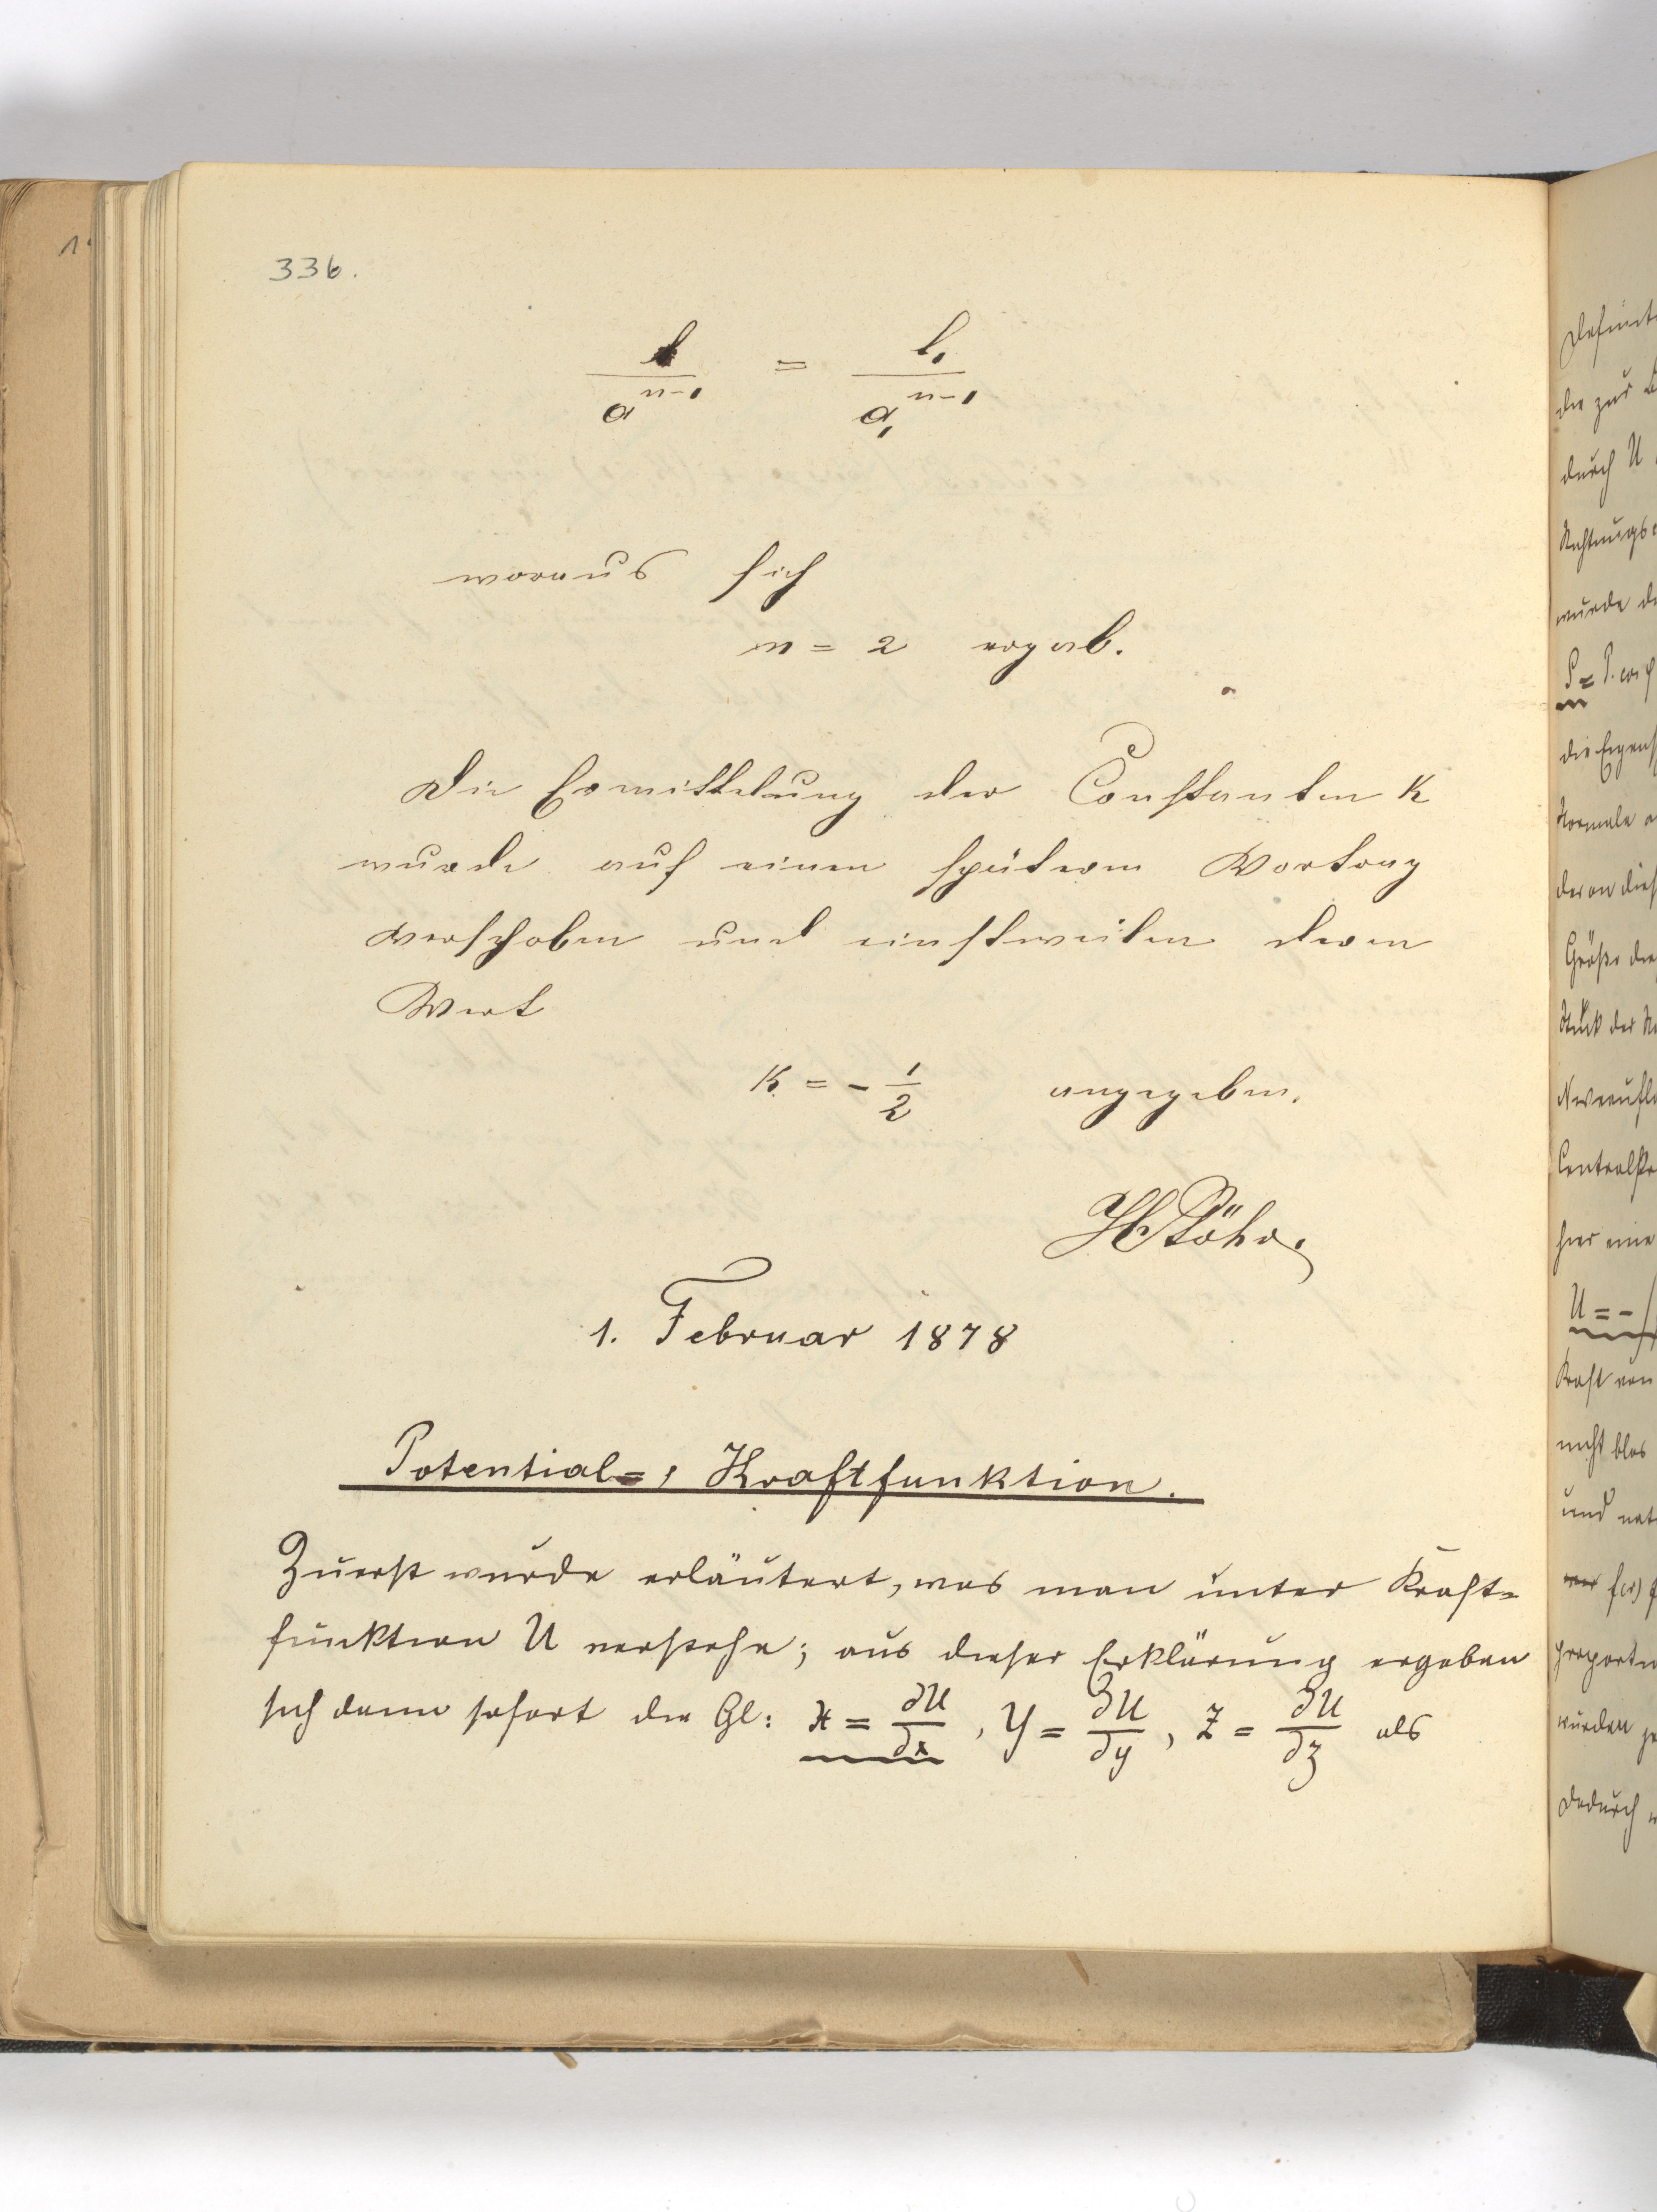 336.
l / a^{n-1} = l₁ / a₁^{n-1}
woraus sich
n = 2 ergab.
Die Ermittelung der Constanten K
wurde auf einen spätern Vortrag
verschoben und einstweilen deren
Wert
K = - 1/2 angegeben.
H Stöhr.
1. Februar 1878
Potential=, Kraftfunktion.
Zuerst wurde erläutert, was man unter Kraft=
funktion U verstehe; aus dieser Erklärung ergeben
sich dann sofort die Gl: X = ∂U/∂x, Y = ∂U/∂y, Z = ∂U/∂z als
die zur
durch U
wurde
S = P. cos φ
Normale
Größe
Stück der
hier eine
U = -
Kraft von
nicht blos
und
f(r)
wurden
dadurch